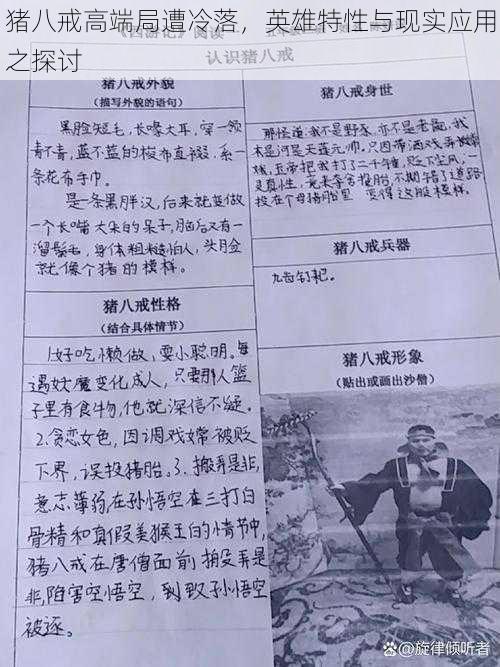 猪八戒高端局遭冷落，英雄特性与现实应用
之探讨
《西游记》阅读
认识猪八戒
猪八戒外貌
（描写外貌的语句）
黑脸短毛，长喙大耳，穿一领
青不青，蓝不蓝的梭布直裰，系一
条花布手巾。
是一条黑胖汉，后来就变做
一个长嘴大朵的呆子，脑后又有一
溜鬃毛，身体粗糙怕人，头脸
就像个猪的模样。
猪八戒身世
那怪道：我不是野豕，亦不是老彘，我
本是河是天蓬元帅，只因带酒戏弄嫦
娥，玉帝把我打了二千锤，贬下尘凡，一
灵真性，竟来夺舍投胎，不期错了道路
投在个母猪胎里 变得这般模样。
猪八戒兵器
九齿钉耙。
猪八戒性格
（结合具体情节）
1、好吃懒做，耍小聪明。每
遇妖魔变化成人，只要那人篮
子里有食物，他就深信不疑。
2.贪恋女色，因调戏嫦被贬
下界，误投猪胎。3、搬弄是非，
意志薄弱，在孙悟空在三打白
骨精和真假美猴王的情节中，
猪八戒在唐僧面前搬弄是
非，陷害空悟空，到致孙悟空
被逐。
猪八戒形象
（贴出或画出沙僧）
@旋律倾听者